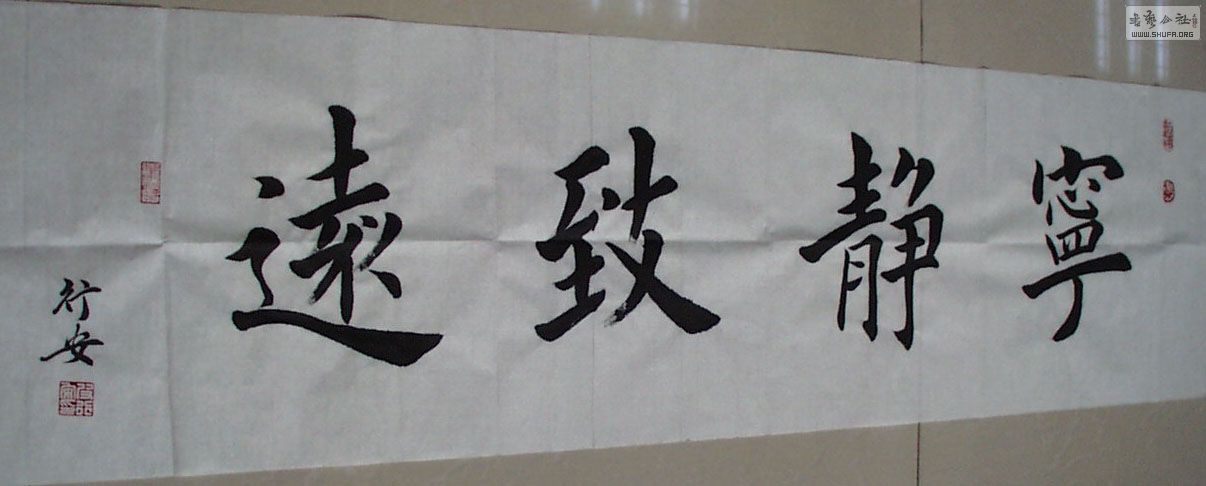 寧静致遠
行安
書藝公社
WWW.SHUFA.ORG